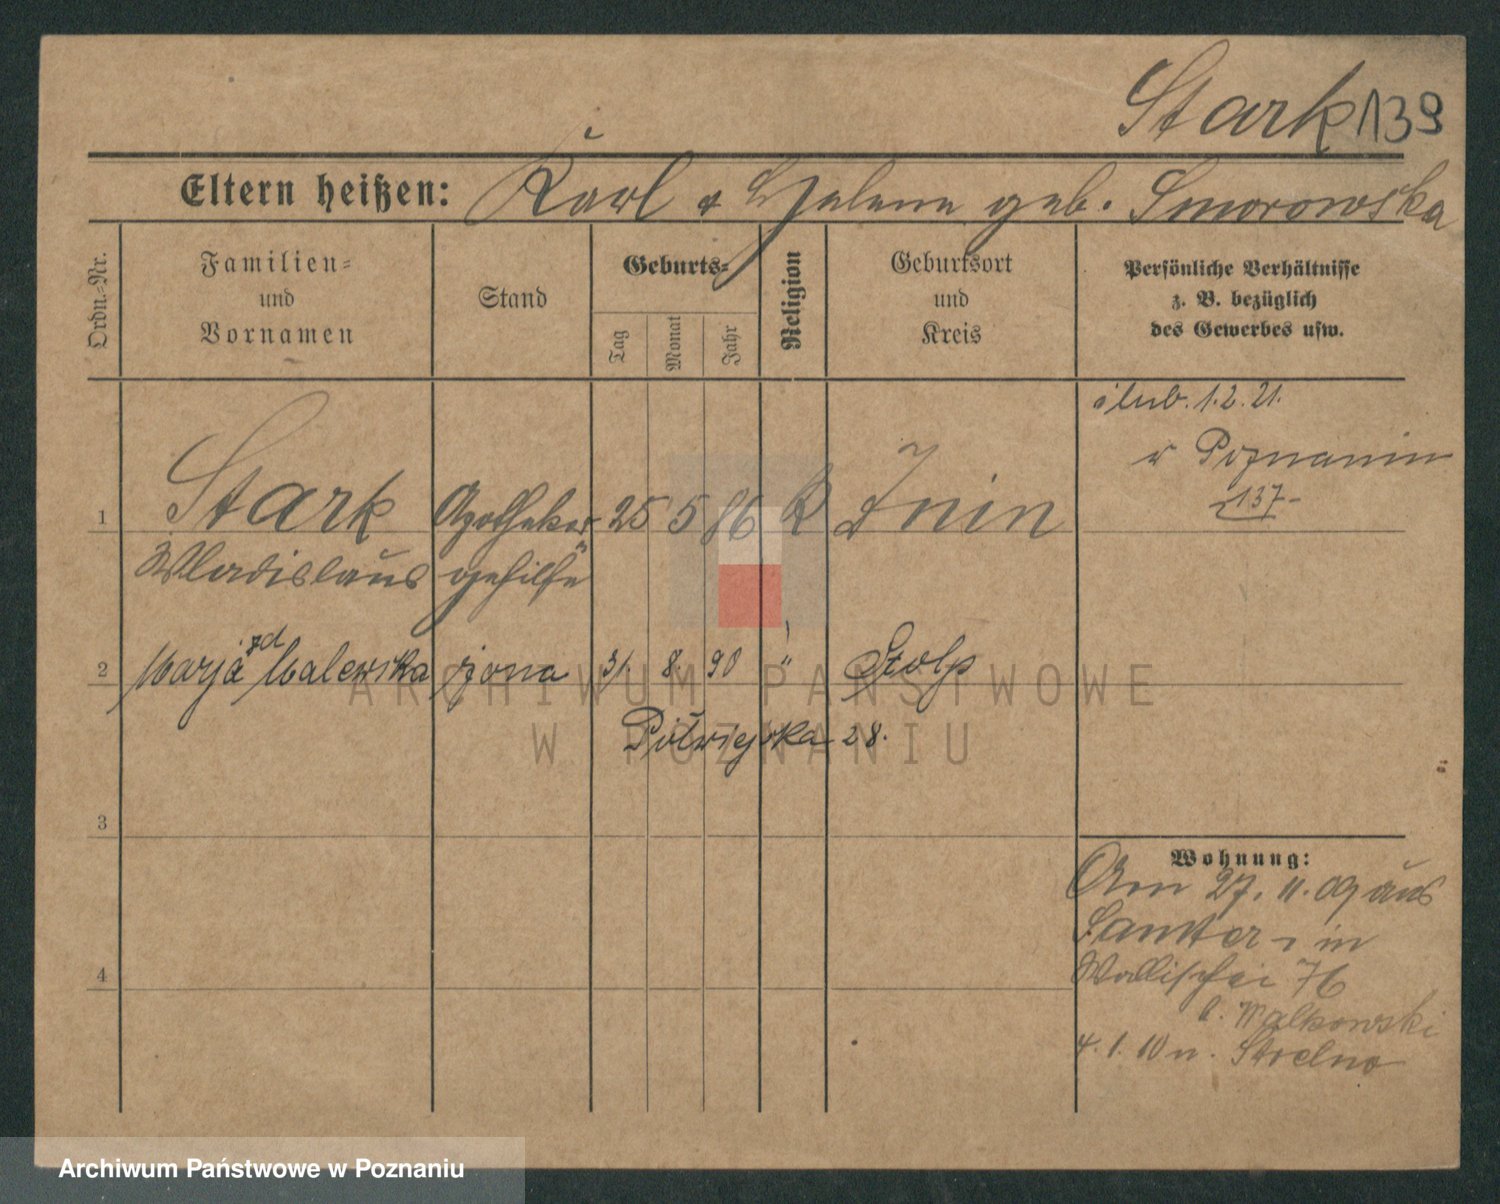 Stark 139
Eltern heißen: Karl & Helene geb. Smorowska
Ordn.-Nr.
Familien-
und
Vornamen
Stand
Geburts-
Tag
Monat
Jahr
Religion
Geburtsort
und
Kreis
Persönliche Verhältnisse
z. B. bezüglich
des Gewerbes usw.
ślub. 1.2.21.
w Poznaniu
137
1 Stark Apotheker 25 5 86 K Znin
Wladislaus gehilfe
2 Marja zd Malewska żona 31. 8. 90 " Stolp
Półwiejska 28.
3
4
Wohnung:
Am 27. 11. 09 aus
Samter, in
Wallischei 76
b. Walkowski
4. 1. 10 n. Strelno
ARCHIWUM PAŃSTWOWE
W POZNANIU
Archiwum Państwowe w Poznaniu